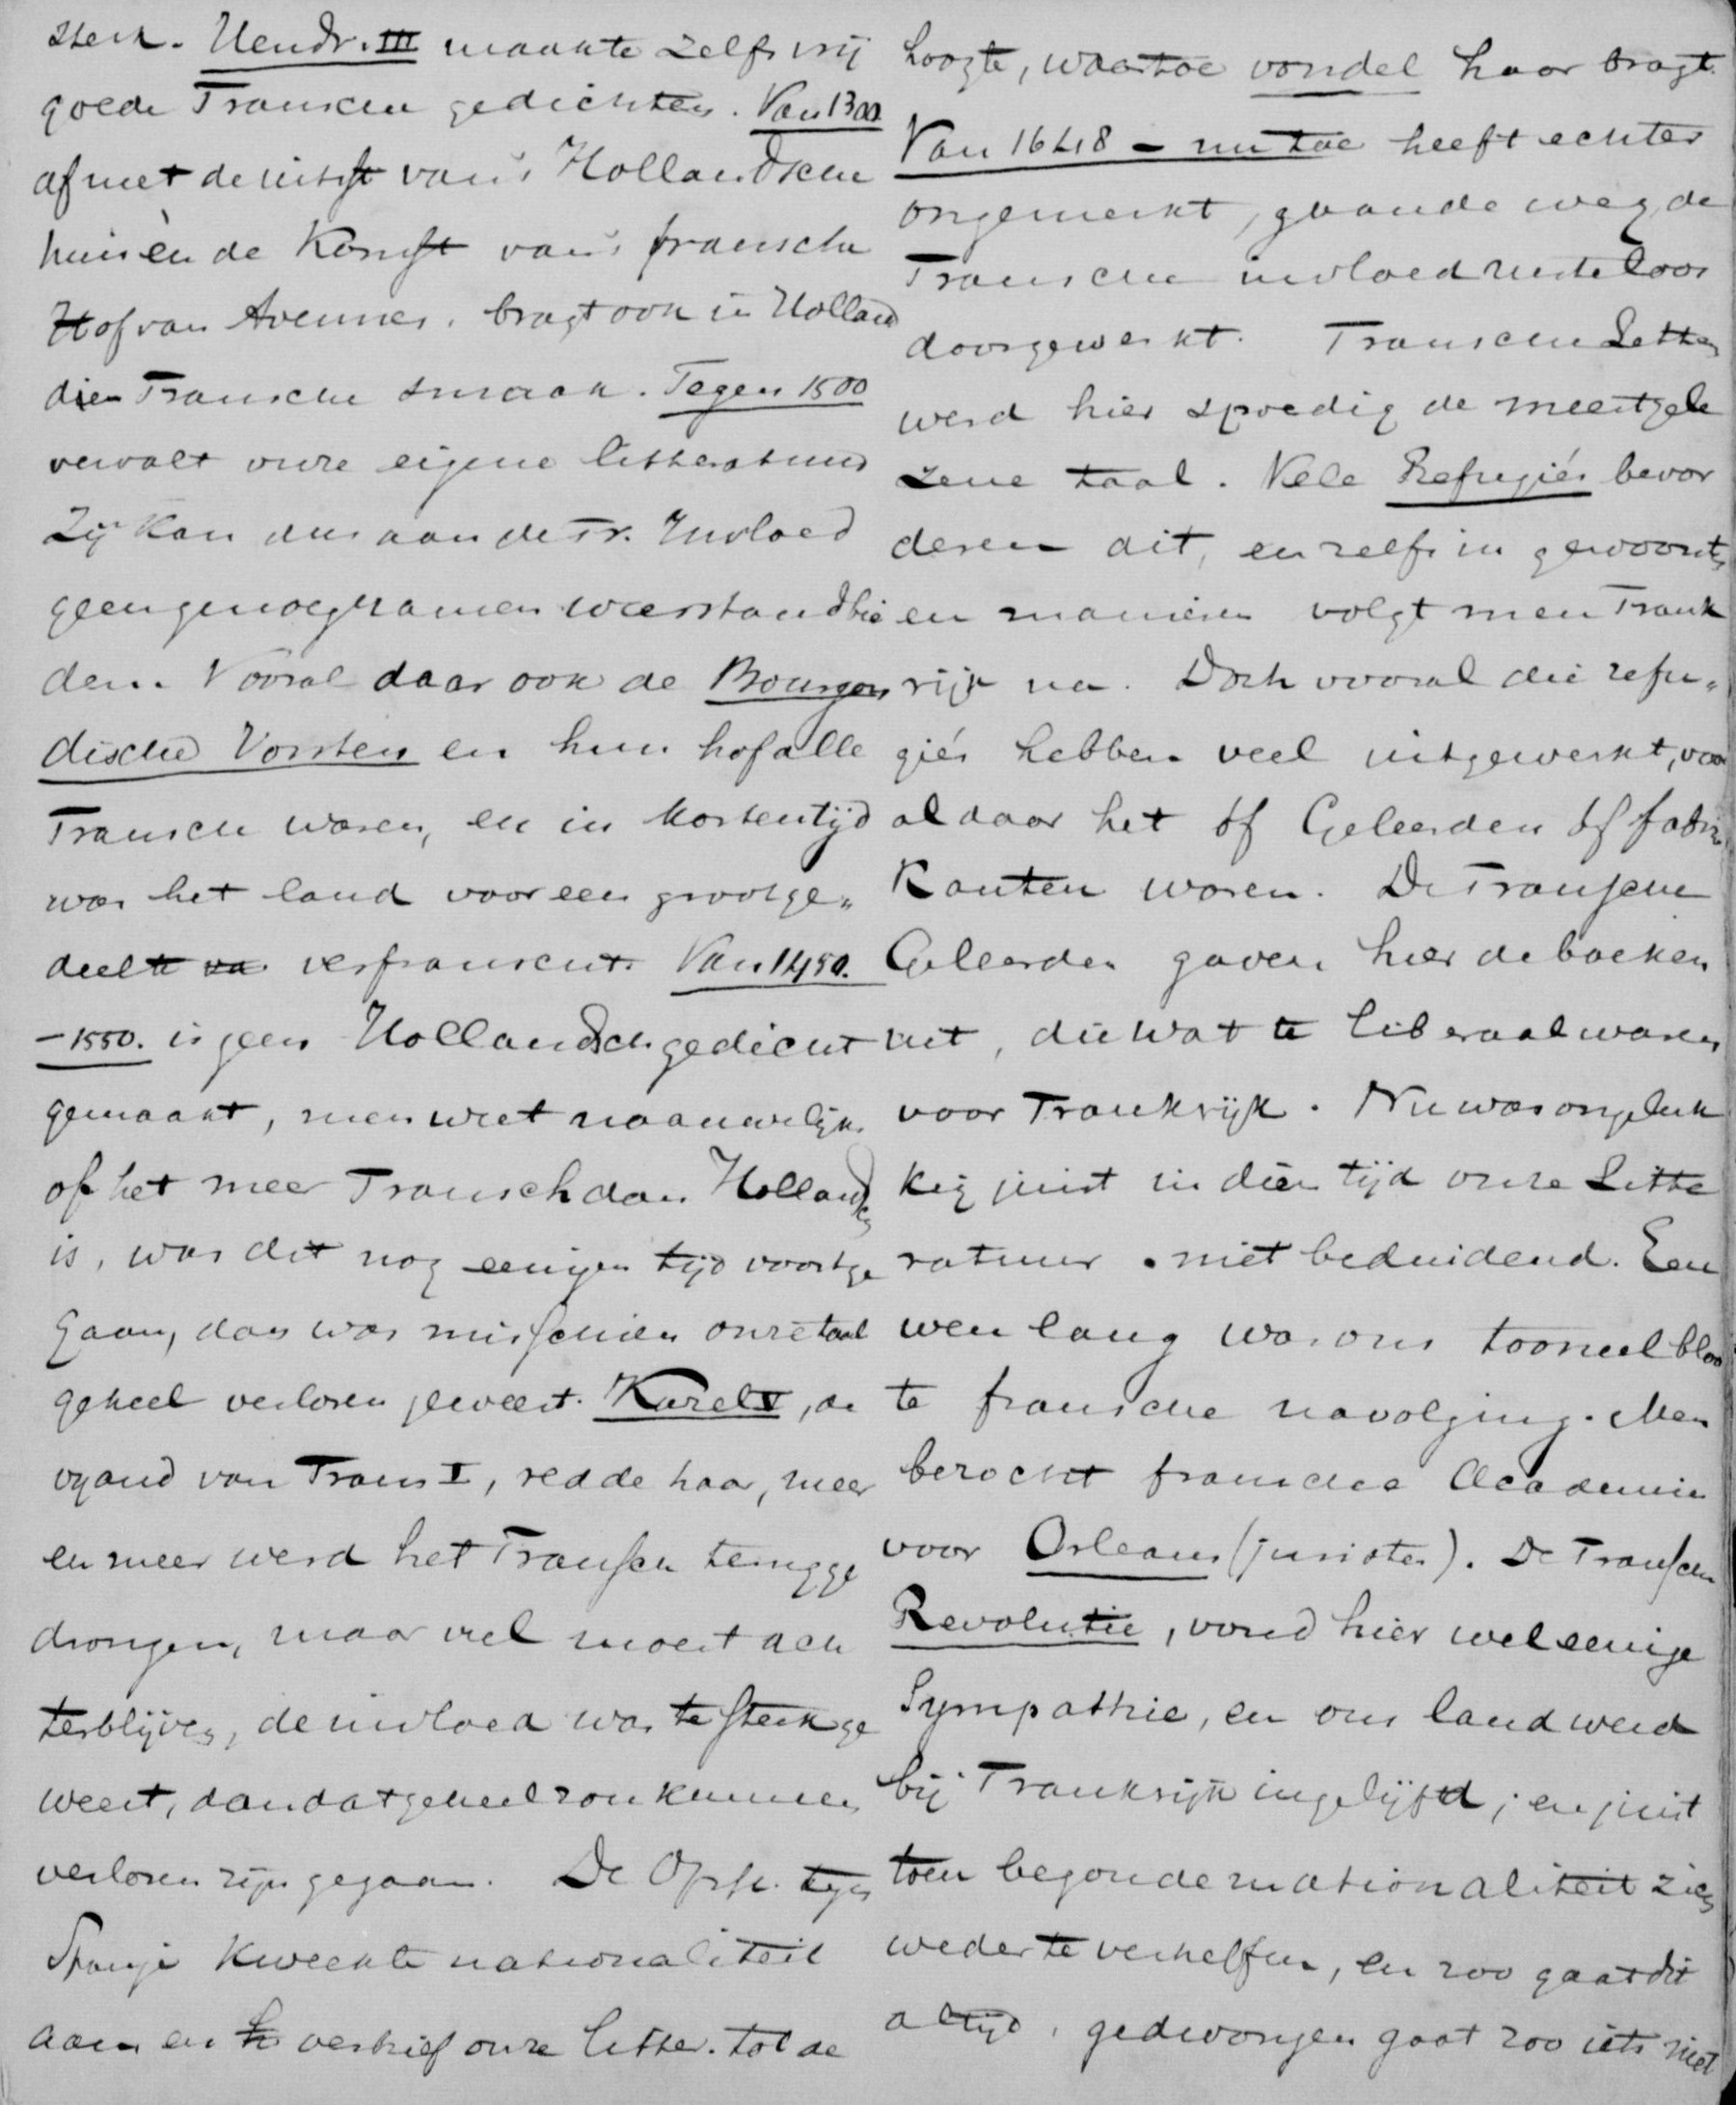 sterk. Hendr. III maakte zelfs vrij
goede Fransche gedichten. Van 1300
af met de uitst van 't Hollandsche
huis en de komst van 't fransche
Hof van Avennes, bragt ook in Holland
dien Fransche smaak. Tegen 1500
vervalt onze eigene litteratuur
Zij kan dus aan de Fr. Invloed
geen genoegzamen weerstand bie
den. Vooral daar ook de Bourgon
dische Vorsten en hun hof alle
Fransch waren, en in korten tijd
was het land voor een groot ge„
deelte va verfranscht. Van 1450.
– 1550. is geen Hollandsch gedicht
gemaakt, men weet naauwelijks
of het meer Fransch dan Hollandsch
is, was dit nog eenigen tijd voortge
gaan, dan was misschien onze taal
geheel verloren geweest. Karel V, de
vyand van Frans I, redde haar, meer
en meer werd het Fransch terugge
drongen, maar veel moest ach
terblijven, de invloed was te sterk ge
weest, dan dat geheel zou kunnen
verloren zijn gegaan. De Opst. tegen
Spanje kweekte nationaliteit
aan en verhief onze litter. tot de
hoogte, waartoe vondel haar bragt.
Van 1648 – nu toe heeft echter
ongemerkt, gaande weg, de
Fransche invloed rusteloos
doorgewerkt. Fransche Letter
werd hier spoedig de meestgele
zene taal. Vele Refugiés bevor
deren dit, en zelfs in gewoonte
en manieren volgt men Frank
rijk na. Doch vooral die refu„
giés hebben veel uitgewerkt, voor
al daar het òf Geleerden òf fabri
kanten waren. De Fransche
Geleerden gaven hier de boeken
uit, die wat te liberaal waren
voor Frankrijk. Nu was ongeluk
kig juist in dien tijd onze Litte
ratuur niet beduidend. Een
wen lang was ons tooneel bloo
te fransche navolging. Men
bezocht fransche Academien
voor Orleans (juristen). De Fransche
Revolutie, vond hier wel eenige
Sympathie, en ons land werd
bij Frankrijk ingelijfd; en juist
toen begon de nationaliteit zich
weder te verheffen, en zoo gaat dit
altijd, gedwongen gaat zoo iets niet